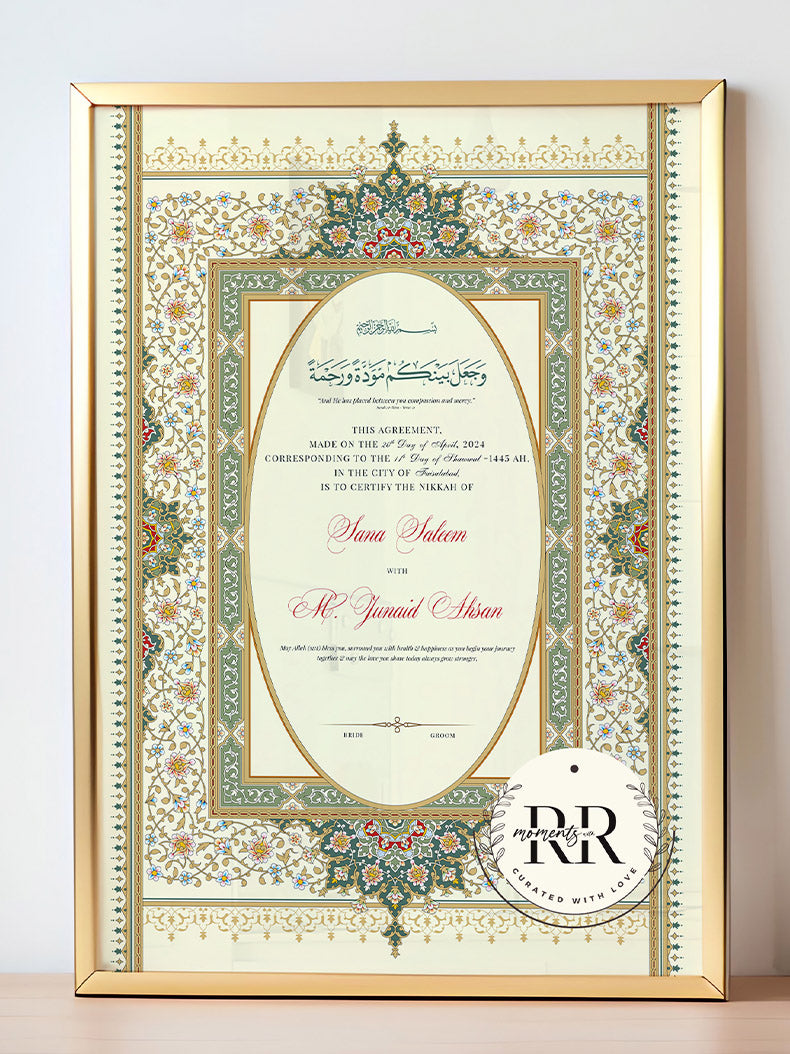 بسم الله الرحمن الرحيم
وَجَعَلَ بَيْنَكُم مَّوَدَّةً وَرَحْمَةً
"And He has placed between you compassion and mercy."
THIS AGREEMENT,
MADE ON THE 20th Day of April, 2024
CORRESPONDING TO THE 11th Day of Shawwal -1445 AH,
IN THE CITY OF Faisalabad,
IS TO CERTIFY THE NIKKAH OF
Sana Saleem
WITH
M. Junaid Ahsan
May Allah (swt) bless you, surround you with health & happiness as you begin your journey
together & may the love you share today always grow stronger.
BRIDE GROOM
moments with
RR
CURATED WITH LOVE